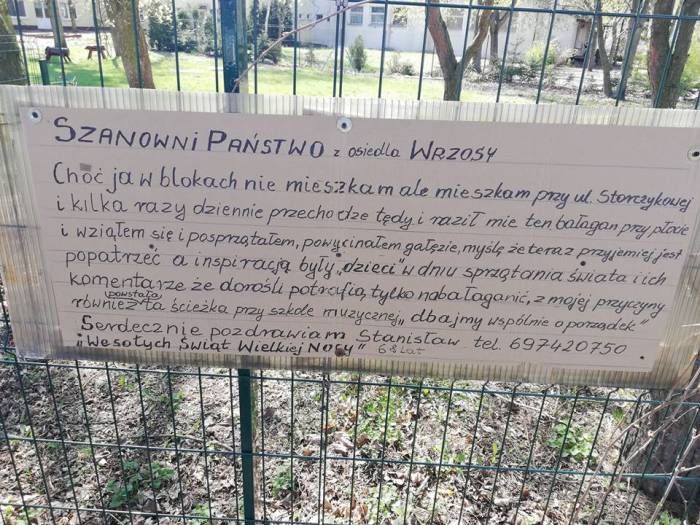 SZANOWNI PAŃSTWO z osiedla WRZOSY
Choć ja w blokach nie mieszkam ale mieszkam przy ul. Storczykowej
i kilka razy dziennie przechodze tędy i raził mie ten bałagan przy płocie
i wziąłem się i posprzątałem, powycinałem gałęzie, myślę że teraz przyjemiej jest
popatrzeć a inspiracją były „dzieci” w dniu sprzątania świata i ich
komentarze że dorośli potrafią tylko nabałaganić, z mojej przyczyny
powstała
również ta ścieżka przy szkole muzycznej „dbajmy wspólnie o porządek”
Serdecznie pozdrawiam Stanisław tel. 697420750
„Wesołych Świąt Wielkiej Nocy” 68 lat